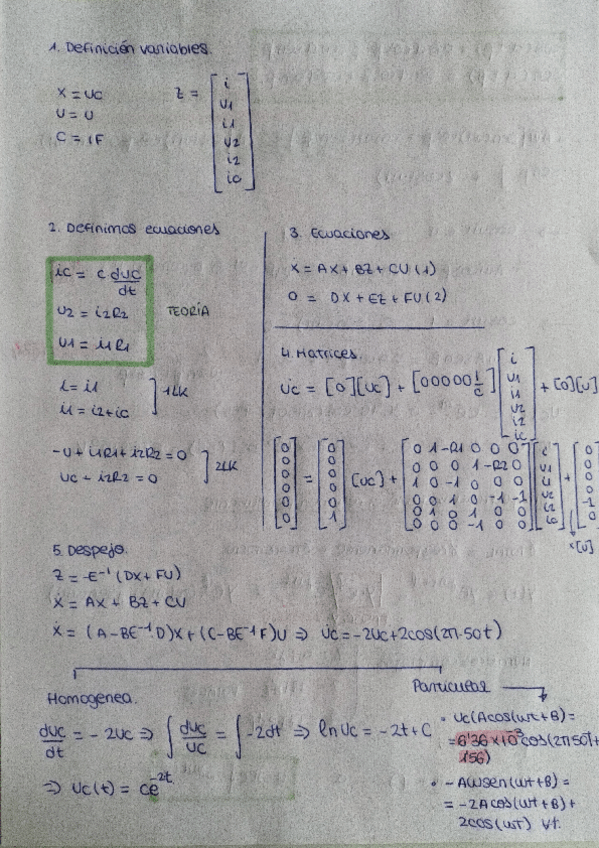 1. Definición variables.
x = uc
u = u
c = 1F
z = [i u1 i1 u2 i2 ic]
2. Definimos ecuaciones
ic = c duc/dt
u2 = i2R2
u1 = i1R1
TEORÍA
i = i1
i1 = i2 + ic
1LK
-u + i1R1 + i2R2 = 0
uc - i2R2 = 0
2LK
3. Ecuaciones
ẋ = Ax + Bz + Cu (1)
0 = Dx + Ez + Fu (2)
4. Matrices
u̇c = [0][uc] + [0 0 0 0 0 1/c] [i u1 i1 u2 i2 ic] + [0][u]
[0 0 0 0 0 0] = [0 0 0 0 0 1] [uc] +
0 1 -R1 0 0 0
0 0 0 1 -R2 0
1 0 -1 0 0 0
0 0 1 0 -1 -1
0 1 0 1 0 0
0 0 0 -1 0 0
[i u1 i1 u2 i2 ic] + [0 0 0 0 -1 0]
x[u]
5. Despejo.
z = -E⁻¹(Dx + Fu)
ẋ = Ax + Bz + Cu
ẋ = (A - BE⁻¹D)x + (C - BE⁻¹F)u ⇒ u̇c = -2uc + 2cos(2π·50t)
Homogenea.
duc/dt = -2uc ⇒ ∫ duc/uc = ∫ -2dt ⇒ ln uc = -2t + C
⇒ uc(t) = ce^-2t
Particular
• uc(Acos(wt+B) =
= 6'36 × 10⁻³ cos(2π50t +
1'56)
• -Awsen(wt+B) =
= -2Acos(wt+B) +
2cos(wt) ∀t.